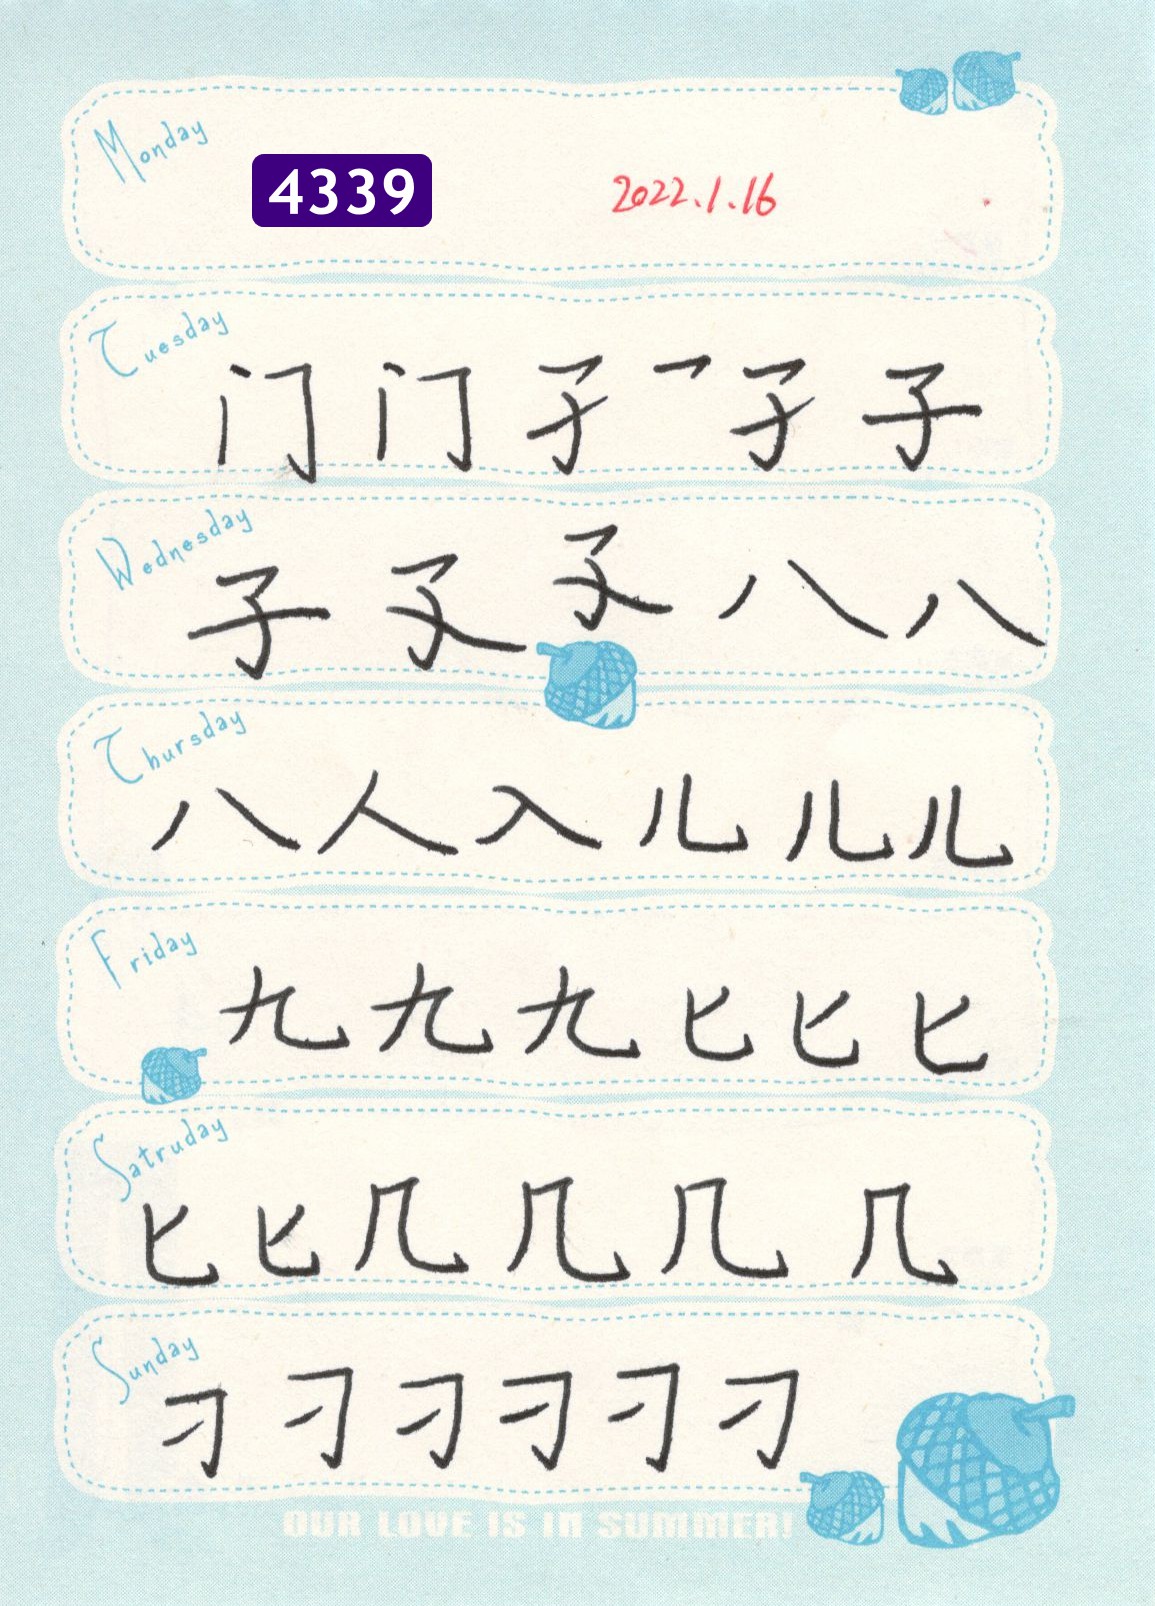 Monday
4339 2022.1.16
Tuesday
门 门 孑 ㇖ 孑 子
Wednesday
子 孓 孓 八 八
Thursday
八 人 入 儿 儿 儿
Friday
九 九 九 匕 匕 匕
Satruday
匕 匕 几 几 几 几
Sunday
刁 刁 刁 刁 刁 刁
OUR LOVE IS IN SUMMER!